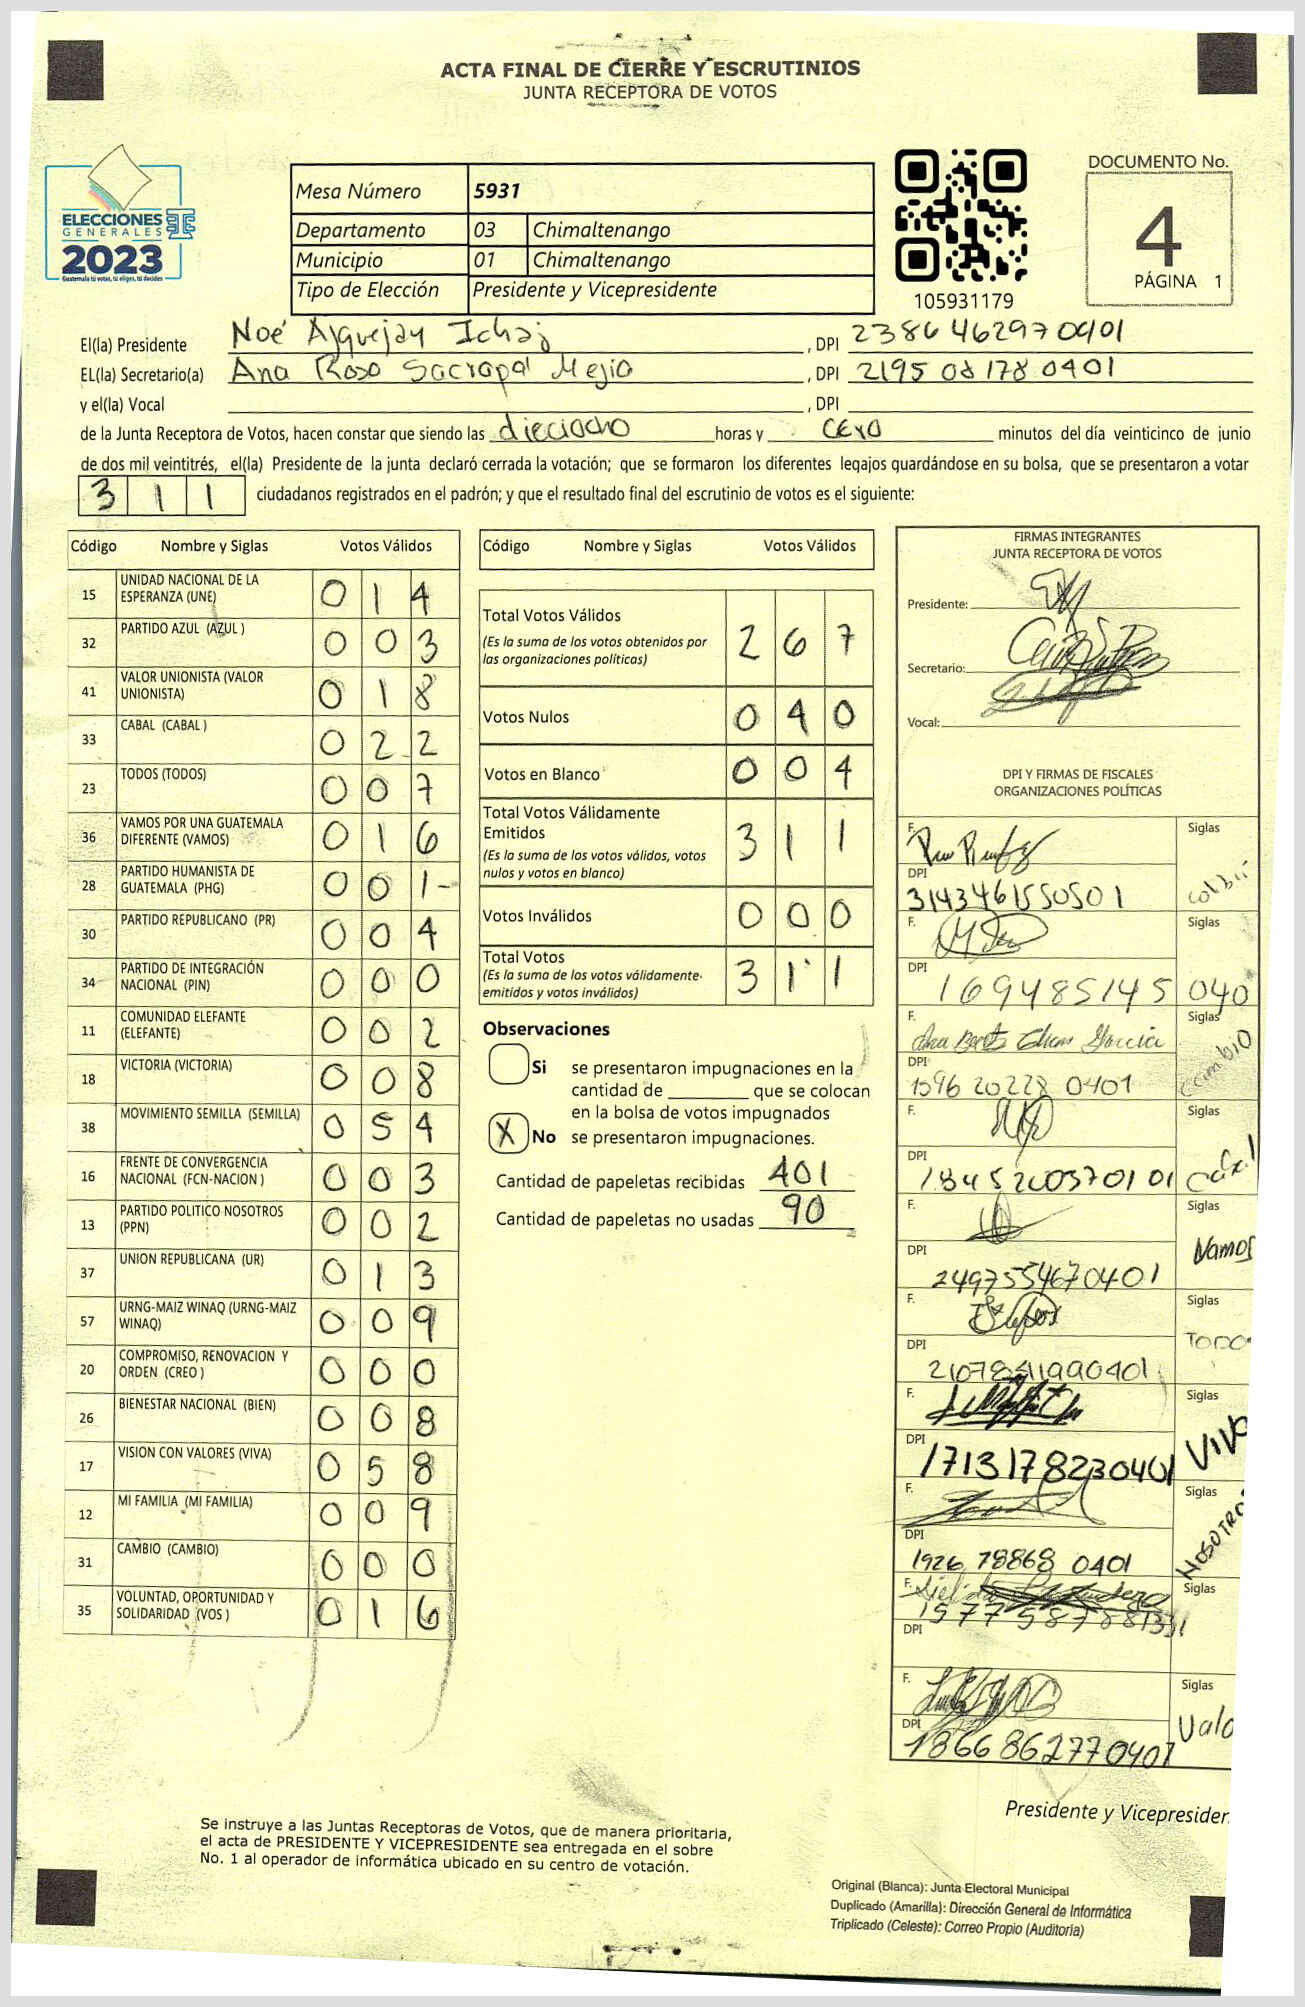 ACTA FINAL DE CIERRE Y ESCRUTINIOS
JUNTA RECEPTORA DE VOTOS
ELECCIONES
GENERALES
2023
Guatemala tú votas, tú eliges, tú decides
Mesa Número 5931
Departamento 03 Chimaltenango
Municipio 01 Chimaltenango
Tipo de Elección Presidente y Vicepresidente
105931179
DOCUMENTO No.
4
PÁGINA 1
El(la) Presidente Noé Ajquejay Ichaj, DPI 2386462970401
EL(la) Secretario(a) Ana Rosa Sacrapal Mejia, DPI 2195 08178 0401
y el(la) Vocal , DPI
de la Junta Receptora de Votos, hacen constar que siendo las dieciocho horas y cero minutos del día veinticinco de junio
de dos mil veintitrés, el(la) Presidente de la junta declaró cerrada la votación; que se formaron los diferentes legajos guardándose en su bolsa, que se presentaron a votar
311 ciudadanos registrados en el padrón; y que el resultado final del escrutinio de votos es el siguiente:
Código Nombre y Siglas Votos Válidos
15 UNIDAD NACIONAL DE LA ESPERANZA (UNE) 0 1 4
32 PARTIDO AZUL (AZUL ) 0 0 3
41 VALOR UNIONISTA (VALOR UNIONISTA) 0 1 8
33 CABAL (CABAL ) 0 2 2
23 TODOS (TODOS) 0 0 7
36 VAMOS POR UNA GUATEMALA DIFERENTE (VAMOS) 0 1 6
28 PARTIDO HUMANISTA DE GUATEMALA (PHG) 0 0 1-
30 PARTIDO REPUBLICANO (PR) 0 0 4
34 PARTIDO DE INTEGRACIÓN NACIONAL (PIN) 0 0 0
11 COMUNIDAD ELEFANTE (ELEFANTE) 0 0 2
18 VICTORIA (VICTORIA) 0 0 8
38 MOVIMIENTO SEMILLA (SEMILLA) 0 5 4
16 FRENTE DE CONVERGENCIA NACIONAL (FCN-NACION ) 0 0 3
13 PARTIDO POLITICO NOSOTROS (PPN) 0 0 2
37 UNION REPUBLICANA (UR) 0 1 3
57 URNG-MAIZ WINAQ (URNG-MAIZ WINAQ) 0 0 9
20 COMPROMISO, RENOVACION Y ORDEN (CREO ) 0 0 0
26 BIENESTAR NACIONAL (BIEN) 0 0 8
17 VISION CON VALORES (VIVA) 0 5 8
12 MI FAMILIA (MI FAMILIA) 0 0 9
31 CAMBIO (CAMBIO) 0 0 0
35 VOLUNTAD, OPORTUNIDAD Y SOLIDARIDAD (VOS ) 0 1 6
Código Nombre y Siglas Votos Válidos
Total Votos Válidos 2 6 7
(Es la suma de los votos obtenidos por
las organizaciones políticas)
Votos Nulos 0 4 0
Votos en Blanco 0 0 4
Total Votos Válidamente
Emitidos 3 1 1
(Es la suma de los votos válidos, votos
nulos y votos en blanco)
Votos Inválidos 0 0 0
Total Votos 3 1 1
(Es la suma de los votos válidamente
emitidos y votos inválidos)
Observaciones
Si se presentaron impugnaciones en la
cantidad de que se colocan
en la bolsa de votos impugnados
X No se presentaron impugnaciones.
Cantidad de papeletas recibidas 401
Cantidad de papeletas no usadas 90
FIRMAS INTEGRANTES
JUNTA RECEPTORA DE VOTOS
Presidente:
Secretario:
Vocal:
DPI Y FIRMAS DE FISCALES
ORGANIZACIONES POLÍTICAS
F. Siglas
DPI
3143461550501
F. Siglas
DPI
169485145 040
F. Siglas
DPI cambio
1596 20228 0401
F. Siglas
DPI
F. Siglas
DPI Vamos
2497554670401
F. Siglas
DPI TODO
2107841990401
F. Siglas
DPI VIVO
1713178230401
F. Siglas
DPI NOSOTRO
1926 78868 0401
F. Siglas
DPI
F. Siglas
DPI Valo
1866862770401
Presidente y Vicepresiden
Se instruye a las Juntas Receptoras de Votos, que de manera prioritaria,
el acta de PRESIDENTE Y VICEPRESIDENTE sea entregada en el sobre
No. 1 al operador de informática ubicado en su centro de votación.
Original (Blanca): Junta Electoral Municipal
Duplicado (Amarilla): Dirección General de Informática
Triplicado (Celeste): Correo Propio (Auditoria)